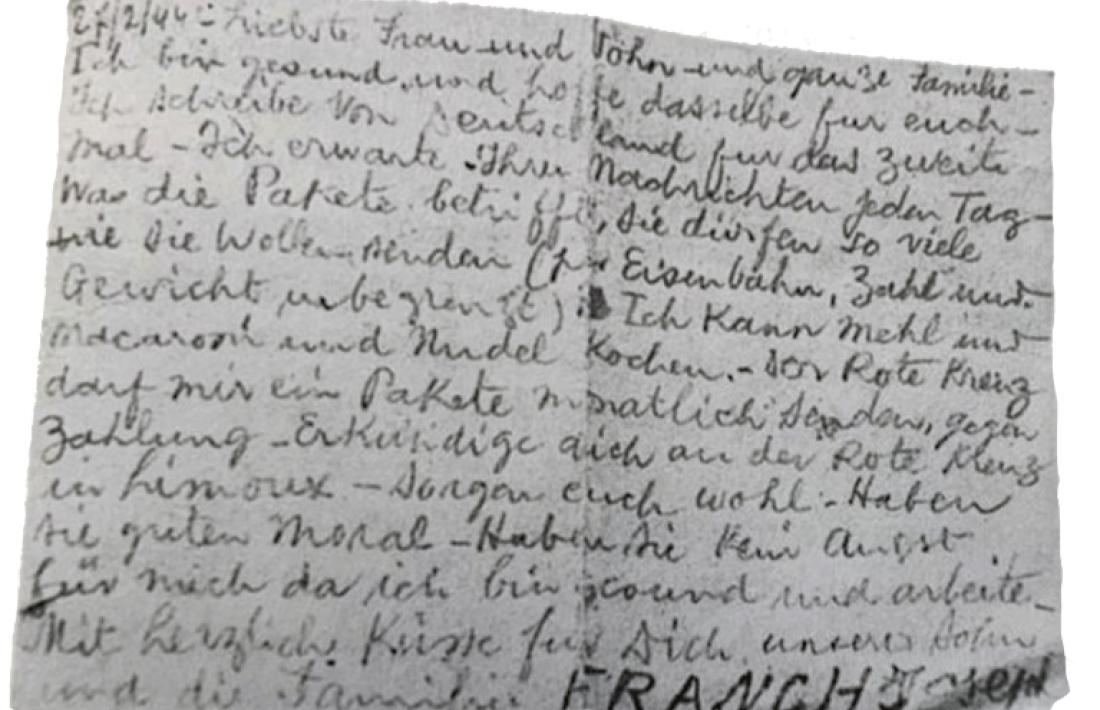 27/2/44 - Liebste Frau und Sohn und ganze Familie -
Ich bin gesund und hoffe dasselbe fur euch -
Ich schreibe von Deutschland fur das zweite
mal - Ich erwarte Ihre Nachrichten jeden Tag -
Was die Pakete betrifft, sie dürfen so viele
wie sie wollen senden (per Eisenbahn, Zahl und
Gewicht unbegrenzt). Ich kann Mehl und
Macaroni und Nudel kochen. - Der Rote Kreuz
darf mir ein Pakete monatlich senden, gegen
Zahlung - Erkundige dich an der Rote Kreuz
in Limoux - Sorgen euch wohl - Haben
sie guten Moral - Haben sie kein Angst
für mich da ich bin gesund und arbeite -
Mit herzliche Küsse fur Dich, unseres Sohn
und die Familie FRANCH Josep